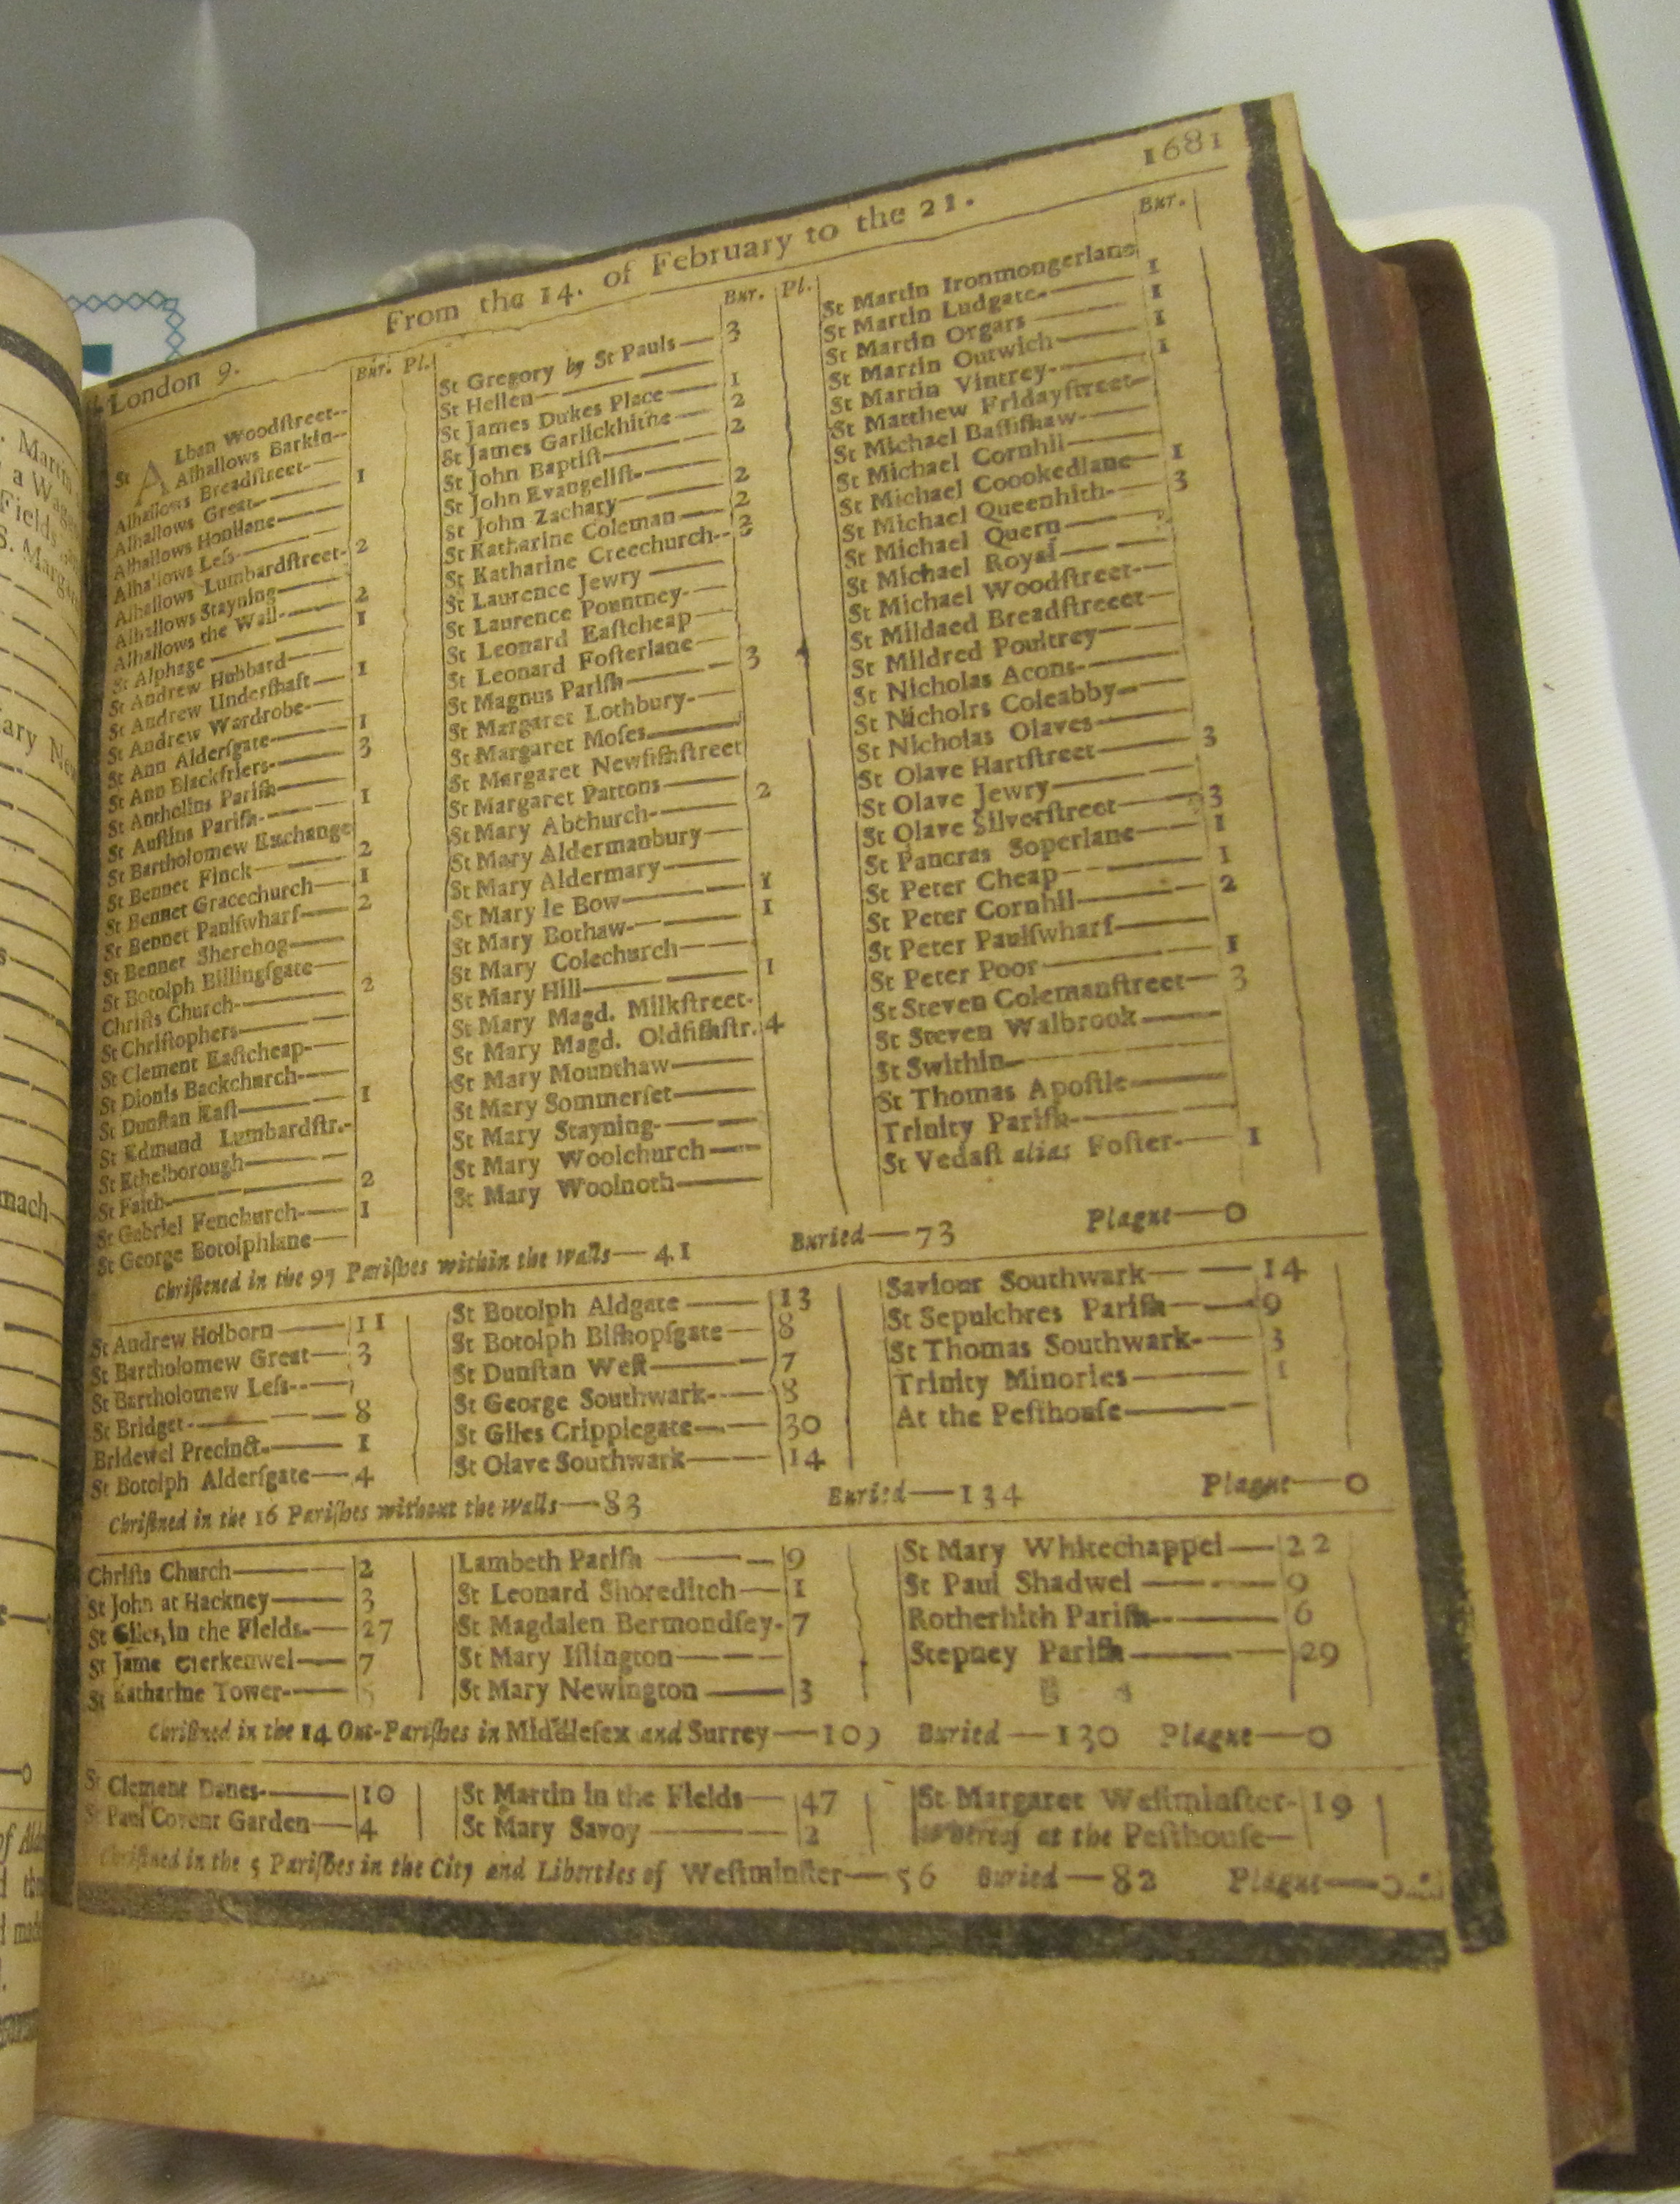 London 9. From the 14. of February to the 21. 1681
Bur. Pl.
St ALban Woodſtreet--
Alhallows Barkin--
Alhallows Breadſtreet---
Alhallows Great— 1
Alhallows Honilane—
Alhallows Leſs—
Alhallows Lumbardſtreet- 2
Alhallows Stayning—
Alhallows the Wall- 2
St Alphage — 1
St Andrew Hubbard—
St Andrew Underſhaft— 1
St Andrew Wardrobe-
St Ann Alderſgate— 1
St Ann Blackfriers- 3
St Antholins Pariſh—
St Auſtins Pariſh- 1
St Bartholomew Exchange
St Bennet Finck— 2
St Bennet Gracechurch— 1
St Bennet Paulſwharf— 2
St Bennet Sherehog—
St Botolph Billingſgate—
Chriſts Church- 2
St Chriſtophers—
St Clement Eaſtcheap-
St Dionis Backchurch-
St Dunſtan Eaſt— 1
St Edmund Lumbardſtr.-
St Ethelborough—
St Faith— 2
St Gabriel Fenchurch- 1
St George Botolphlane—
Bur. Pl.
St Gregory by St Pauls— 3
St Hellen—
St James Dukes Place— 1
St James Garlickhithe— 2
St John Baptiſt— 2
St John Evangeliſt-
St John Zachary— 2
St Katharine Coleman— 2
St Katharine Creechurch-- 3
St Laurence Jewry —
St Laurence Pountney-
St Leonard Eaſtcheap—
St Leonard Foſterlane—
St Magnus Pariſh— 3
St Margaret Lothbury-
St Margaret Moſes—
St Margaret Newfiſhſtreet
St Margaret Pattons—
St Mary Abchurch— 2
St Mary Aldermanbury—
St Mary Aldermary—
St Mary le Bow— 1
St Mary Bothaw- 1
St Mary Colechurch—
St Mary Hill— 1
St Mary Magd. Milkſtreet-
St Mary Magd. Oldfiſhſtr. 4
St Mary Mounthaw—
St Mary Sommerſet—
St Mary Stayning-
St Mary Woolchurch—
St Mary Woolnoth—
Bur.
St Martin Ironmongerlane
St Martin Ludgate- 1
St Martin Orgars — 1
St Martin Outwich— 1
St Martin Vintrey- 1
St Matthew Fridayſtreet—
St Michael Baſſiſhaw—
St Michael Cornhil—
St Michael Coookedlane— 1
St Michael Queenhith- 3
St Michael Quern —
St Michael Royal—
St Michael Woodſtreet-
St Mildaed Breadſtreeet—
St Mildred Poultrey—
St Nicholas Acons-
St Nicholrs Coleabby—
St Nicholas Olaves—
St Olave Hartſtreet— 3
St Olave Jewry—
St Olave Silverſtreet— 3
St Pancras Soperlane— 1
St Peter Cheap— 1
St Peter Cornhil— 2
St Peter Paulſwharf—
St Peter Poor— 1
St Steven Colemanſtreet— 3
St Steven Walbrook—
St Swithin—
St Thomas Apoſtle—
Trinity Pariſh-
St Vedaſt alias Foſter- 1
Chriſtned in the 97 Pariſhes within the Walls— 41 Buried—73 Plague—0
St Andrew Holborn — 11
St Bartholomew Great— 3
St Bartholomew Leſs--
St Bridget- 8
Bridewel Precinct- 1
St Botolph Alderſgate— 4
St Botolph Aldgate — 13
St Botolph Biſhopſgate— 8
St Dunſtan Weſt— 7
St George Southwark- 8
St Giles Cripplegate— 30
St Olave Southwark— 14
Saviour Southwark— 14
St Sepulchres Pariſh— 9
St Thomas Southwark- 3
Trinity Minories— 1
At the Peſthouſe—
Chriſtned in the 16 Pariſhes without the Walls—83 Buried—134 Plague—0
Chriſts Church— 2
St John at Hackney— 3
St Giles in the Fields- 27
St Jame Clerkenwel— 7
St Katharine Tower- 5
Lambeth Pariſh — 9
St Leonard Shoreditch— 1
St Magdalen Bermondſey- 7
St Mary Iſlington—
St Mary Newington — 3
St Mary Whitechappel— 22
St Paul Shadwel — 9
Rotherhith Pariſh- 6
Stepney Pariſh— 29
Chriſtned in the 14 Out-Pariſhes in Middleſex and Surrey—109 Buried—130 Plague—0
St Clement Danes- 10
St Paul Covent Garden— 4
St Martin in the Fields— 47
St Mary Savoy — 2
St Margaret Weſtminſter- 19
whereof at the Peſthouſe—
Chriſtned in the 5 Pariſhes in the City and Liberties of Weſtminſter—56 Buried—82 Plague—0